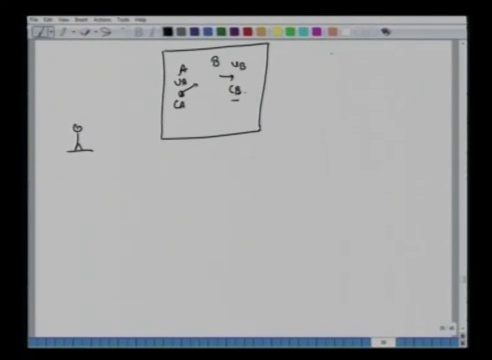 File Edit View Insert Actions Tools Help
A B UB
UA
CA CB